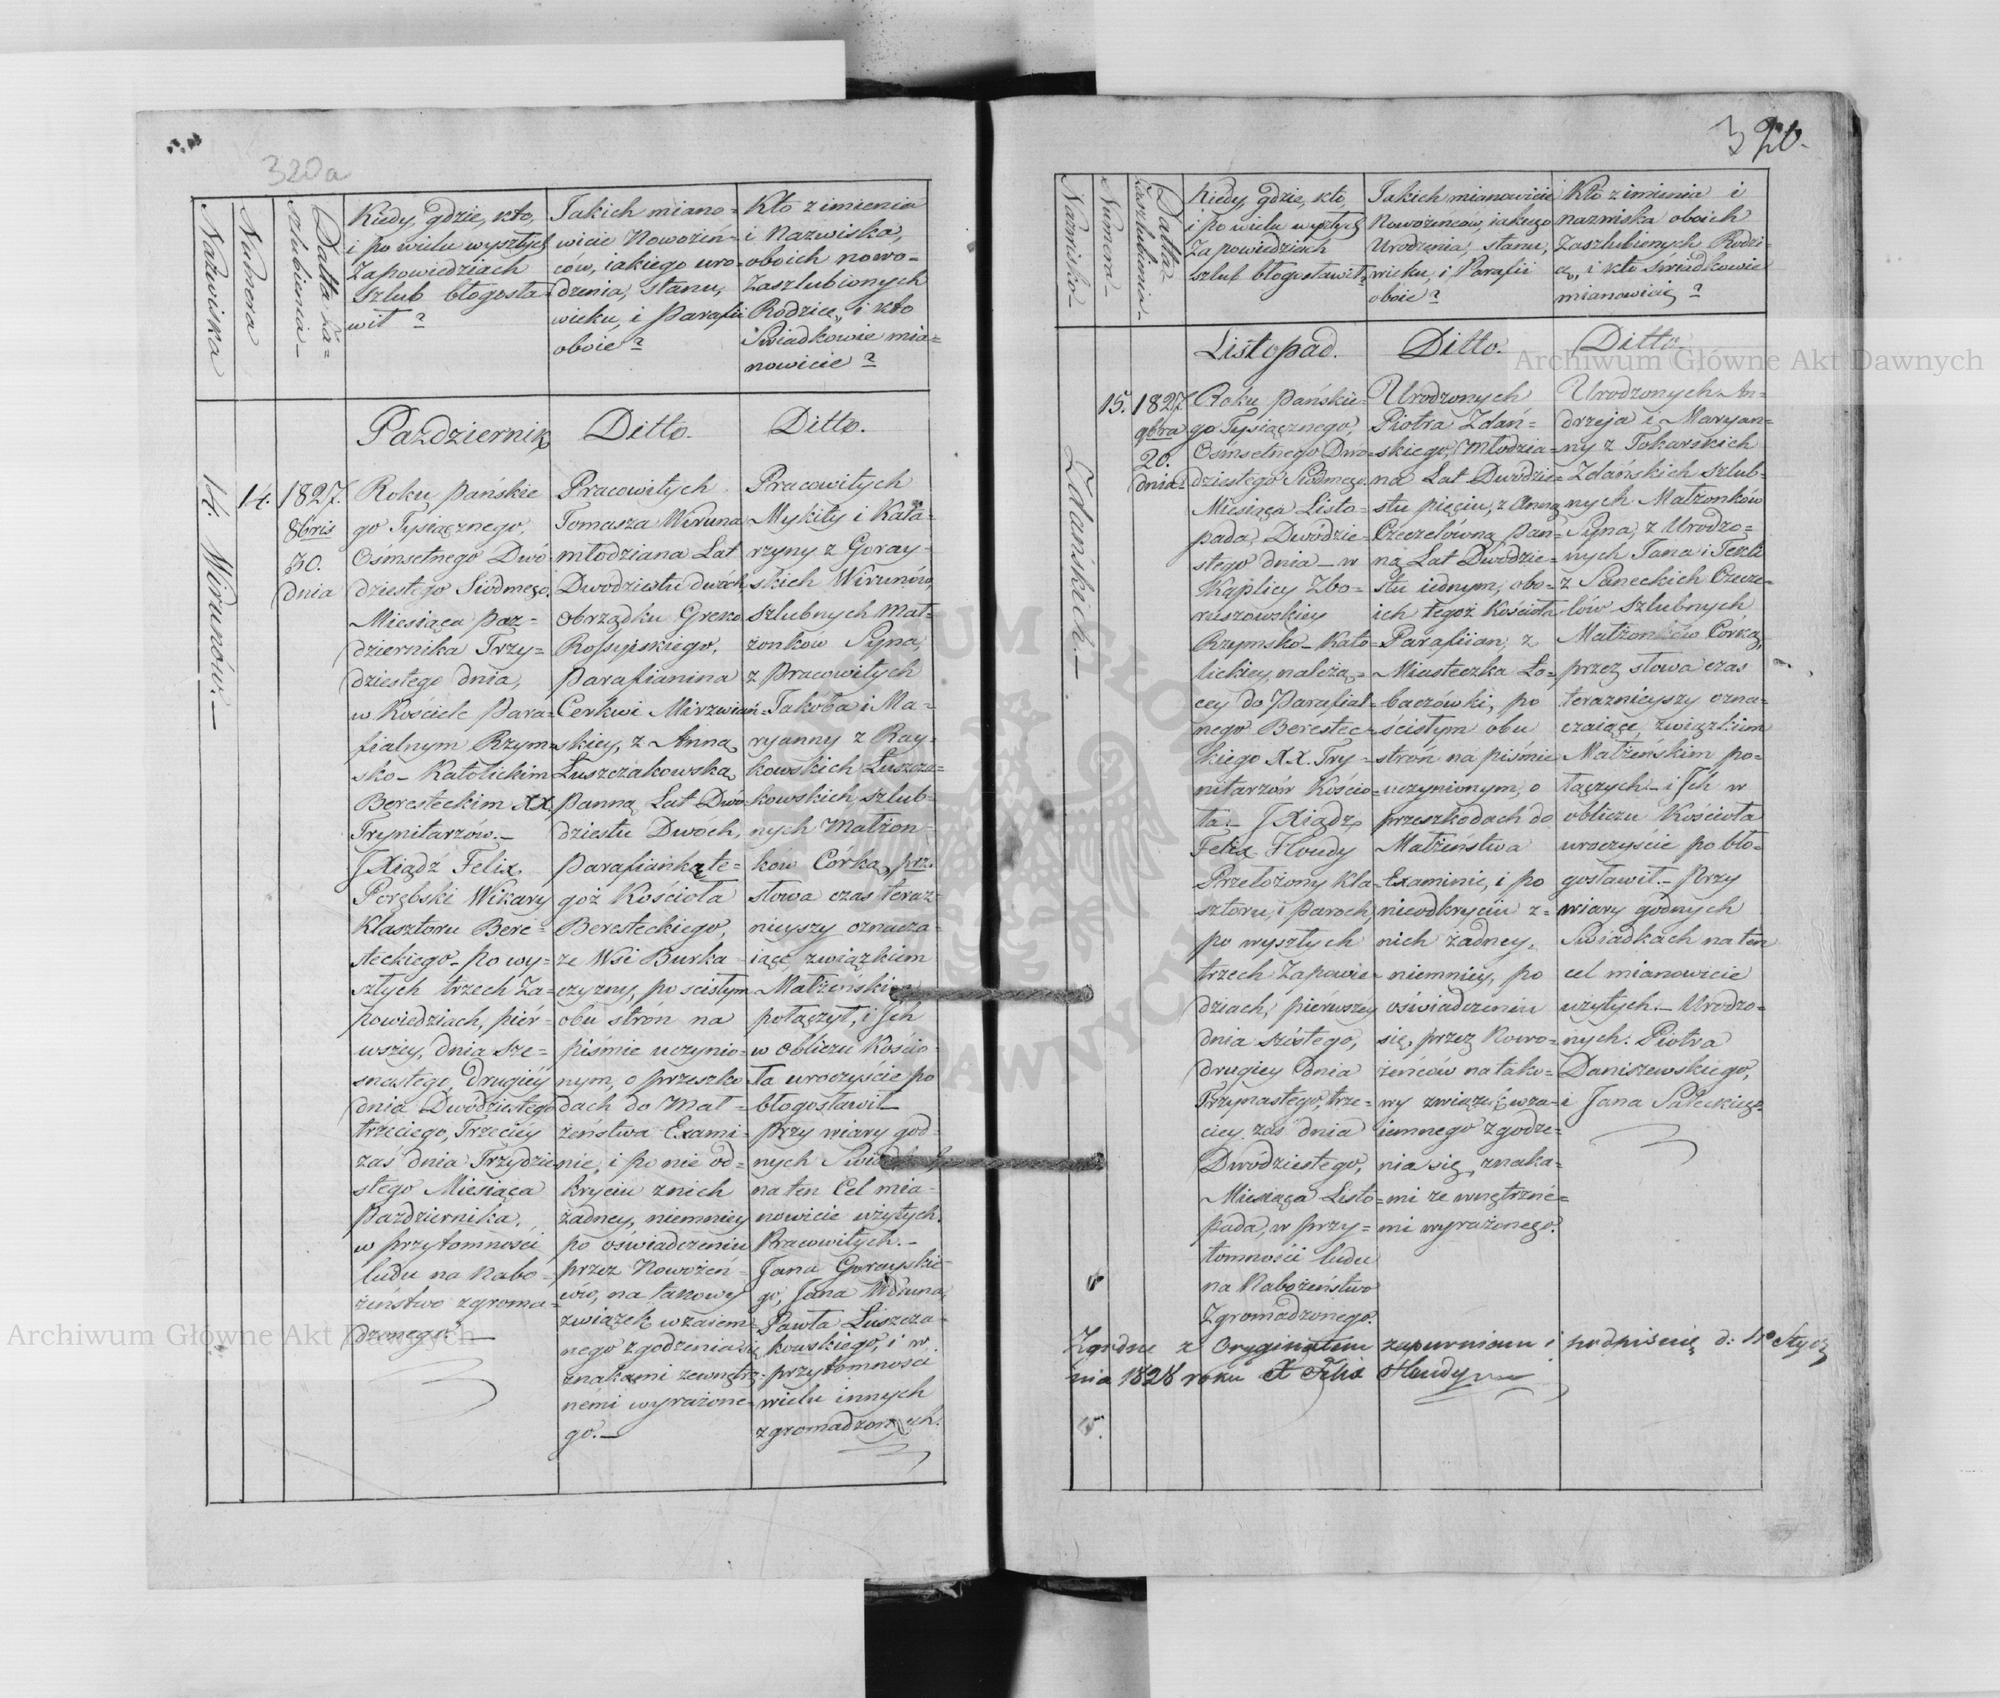 320a
Nazwiska
Numera
Datta Za=
szlubienia_
Kiedy, gdzie, kto,
i po wielu wyszłych
Zapowiedziach
Szlub błogosta=
wił ?
Jakich miano=
wicie Nowożeń=
ców, iakiego uro=
dzenia, stanu,
wieku, i Parafii
oboie ?
Kto z imienia
i Nazwiska,
oboich nowo=
Zaszlubionych
Rodzice, i kto
Swiadkowie mia=
nowicie ?
Pazdziernik
Ditto.
Ditto.
14. Wirunów._
14.
1827.
8bris
30.
dnia
Roku Pańskie
go Tysiącznego,
Osmsetnego Dwó
dziestego Siódmego,
Miesiąca Paz=
dziernika Trzy=
dziestego dnia,
w Kościele Para=
fialnym Rzym=
sko_Katolickim
Beresteckim XX.
Trynitarzów._
JXiądz Felix
Porębski Wikary
Klasztoru Bere=
steckiego_ po wy=
szłych trzech Za=
powiedziach, piér=
wszey, dnia sze=
snastego, drugiéy
dnia Dwódziestego
trzeciego, Trzeciéy
zaś dnia Trzydzie
stego Miesiąca
Pazdziernika,
w przytomności
ludu na Nabo=
żeństwo zgroma=
dzonego._
Pracowitych
Tomasza Wiruna
młodziana Lat
Dwodziestu dwóch,
obrządku Greko
Rossyiskiego,
Parafianina
Cerkwi Mirzwiań=
skiey, z Anną
Łuszczakowską
Panną Lat Dwó
dziestu Dwóch,
Parafianką te=
goż Kościoła
Beresteckiego,
ze Wsi Burka
czyzny, po scisłym
obu strón na
piśmie uczynio=
nym, o przeszko
dach do Mał=
żeństwa Exami=
nie, i po nie od=
kryciu znich
żadney, niemniey
po oświadczeniu
przez Nowożeń=
ców, na takowy
związek wzaiem=
nego zgodzenia się
znakami zewnętrz=
némi wyrażone=
go._
Pracowitych
Mykity i Kata=
rzyny z Goray=
skich Wirunów,
szlubnych Mał=
żonków Syna,
z Pracowitych
Jakóba i Ma=
ryanny z Ray=
kowskich Łuszcza=
kowskich, szlub=
nych Małżon=
ków Córką, prz.
słowa czas teraz=
nieyszy oznacza=
iące związkiem
Małżeńskim
połączył, i Jch
w Obliczu Kościo=
ła uroczyście po
błogosławił_
Przy wiary god=
nych
na ten Cel mia=
nowicie użytych.
Pracowitych._
Jana Gorayskie=
go, Jana Wiruna,
Pawła Łuszcza=
kowskiego, i w
przytomności
wielu innych
zgromadzonych.
320.
Nazwiska_
Numera_
Datta
Zaszlubienia.
Kiedy, gdzie, kto,
i po wielu wyszłych
Zapowiedziach
szlub błogosławił?
Jakich mianowicie
Nowożeńców, iakiego
Urodzenia, stanu,
wieku, i Parafii
oboie ?
Kto z imienia i
nazwiska oboich
Zaszlubionych Rodzi=
ce, i kto świadkowie
mianowicie ?
Listopad.
Ditto.
Ditto._
Zdańskich._
15.
1827.
9bra
20.
dnia
Roku Pańskie=
go Tysiącznego,
Osmsetnego Dwó=
dziestego Siódmego
Miesiąca Listo=
pada, Dwódzie=
stego dnia_ w
Kaplicy Zbo=
roszowskiey
Rzymsko_Kato=
lickiey, należą=
cey do Parafial=
nego Berestec=
kiego XX. Try=
nitarzów Kościo=
ła._ JXiądz
Felix Houdy
Przełożony Kla=
sztoru, i Paroch
po wyszłych
trzech Zapowie=
dziach, pierwszéy
dnia szóstego,
drugiey dnia
Trzynastego, trze=
ciey zaś dnia
Dwódziestego,
Miesiąca Listo=
pada, w przy=
tomności ludu
na Nabożeństwo
Zgromadzonego.
Urodzonych
Piotra Zdań=
skiego, Młodzia=
na Lat Dwódzie=
stu pięciu, z Anną
Czeczelówną Pan=
ną Lat Dwódzie=
stu iednym, obo=
ich tegoż Kościoła
Parafiian, z
Miasteczka Ło=
baczówki, po
ścisłym obu
strón na piśmie
uczynionym, o
przeszkodach do
Małżeństwa
Examinie, i po
nieodkryciu z=
nich żadney,
niemniey, po
oświadczeniu
się, przez Nowo=
żeńców na tako=
wy związek wza=
iemnego zgodze=
nia się, znaka=
mi zewnętrzné=
mi wyrażonego.
Urodzonych An=
drzeja i Maryan=
ny z Tokarskich
Zdańskich szlub=
nych Małżonków
Syna, z Urodzo=
nych Jana i Tekli
z Saneckich Czecze=
lów szlubnych
Małżonków Córką,
przez słowa czas
teraznieyszy ozna=
czaiące, związkiem
Małżeńskim po=
łączych_ i Jch w
obliczu Kościoła
uroczyście pobło=
gosławił._ Przy
wiary godnych
Swiadkach na ten
cel mianowicie
użytych._ Urodzo=
nych. Piotra
Daniszewskiego,
i Jana Sałeckiego.
Zgodne z Oryginałem zapewniam i podpisuię d: 1º Stycz
nia 1828 roku X Felix Houdy
15.
Archiwum Główne Akt Dawnych
Archiwum Główne Akt Dawnych